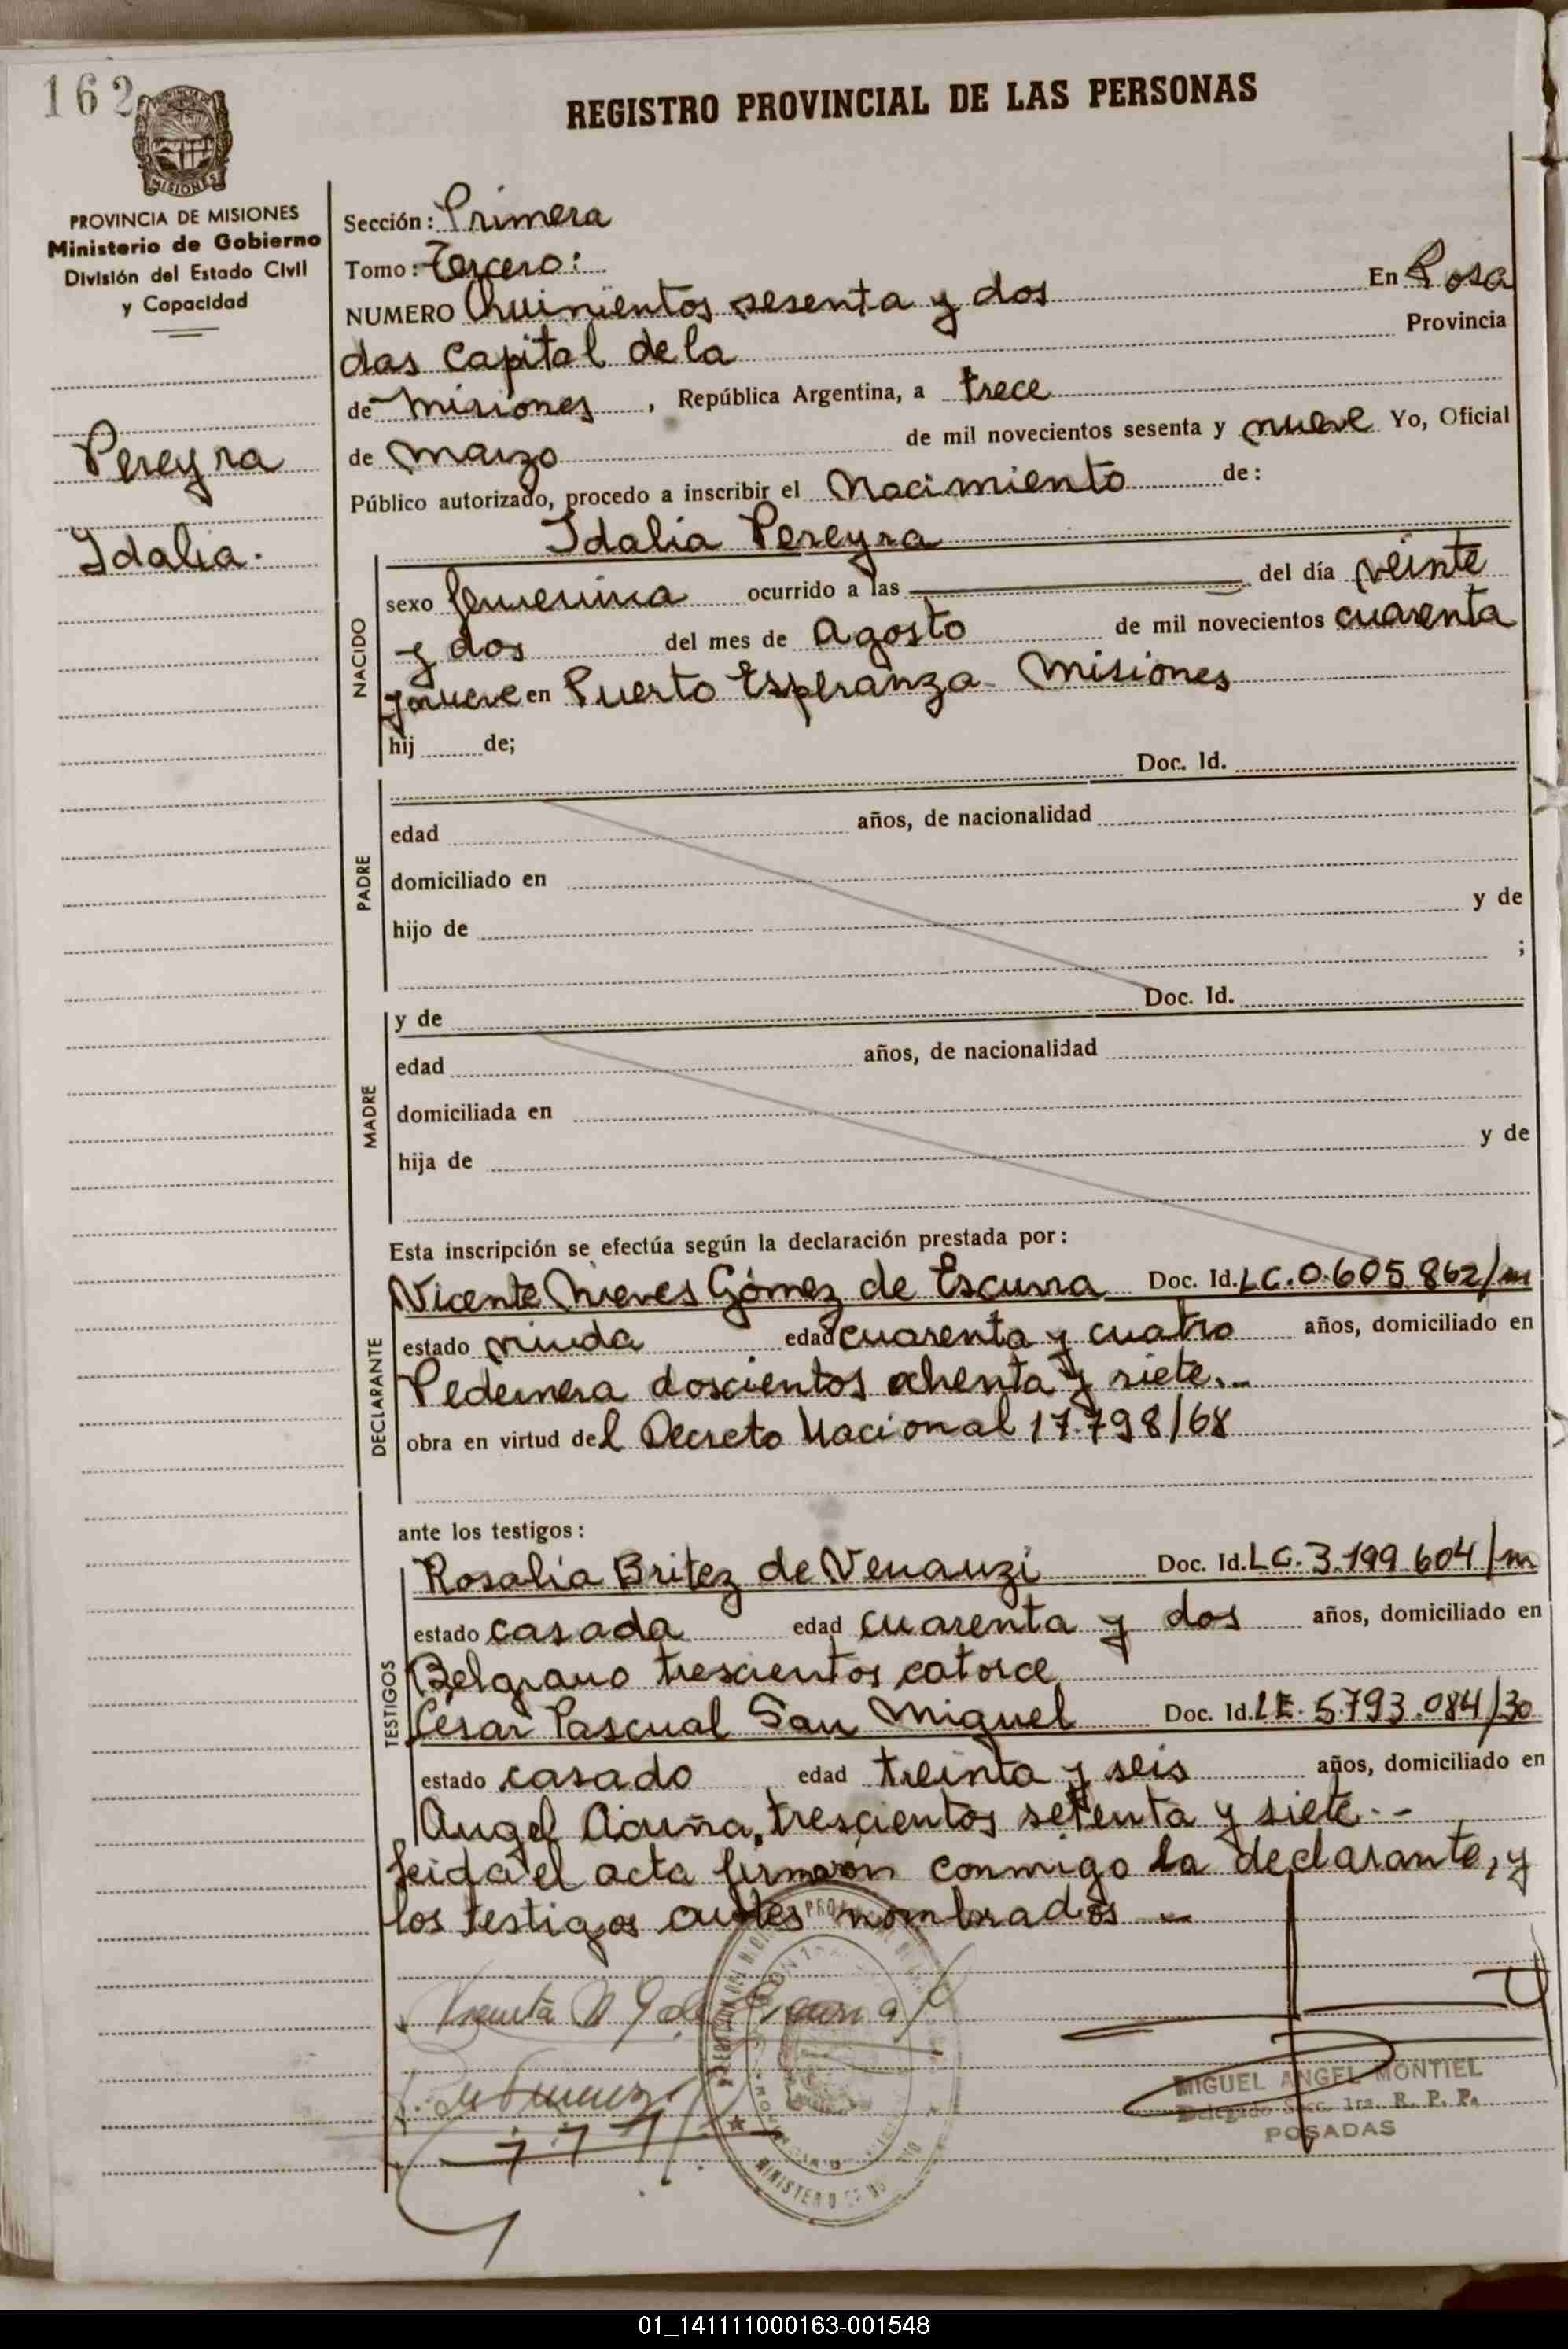 162
MISIONES
REGISTRO PROVINCIAL DE LAS PERSONAS
PROVINCIA DE MISIONES
Ministerio de Gobierno
División del Estado Civil
y Capacidad
Pereyra
Idalia.
Sección: Primera
Tomo: Tercero:
NUMERO Quinientos sesenta y dos En Posa
das Capital de la Provincia
de Misiones, República Argentina, a trece
de marzo de mil novecientos sesenta y nueve Yo, Oficial
Público autorizado, procedo a inscribir el Nacimiento de:
Idalia Pereyra
NACIDO
sexo femenina ocurrido a las del día veinte
y dos del mes de Agosto de mil novecientos cuarenta
y nueve en Puerto Esperanza - Misiones
hij de;
Doc. Id.
PADRE
edad años, de nacionalidad
domiciliado en
hijo de y de
;
MADRE
y de Doc. Id.
edad años, de nacionalidad
domiciliada en
hija de y de
Esta inscripción se efectúa según la declaración prestada por:
DECLARANTE
Vicente Nieves Gómez de Escurra Doc. Id. LC. 0.605.862/m
estado viuda edad cuarenta y cuatro años, domiciliado en
Pedernera doscientos ochenta y siete.-
obra en virtud del Decreto Nacional 17.798/68
ante los testigos:
TESTIGOS
Rosalía Britez de Venauzi Doc. Id. LC. 3.199.604/m
estado casada edad cuarenta y dos años, domiciliado en
Belgrano trescientos catorce
César Pascual San Miguel Doc. Id. LE. 5.793.084/30
estado casado edad treinta y seis años, domiciliado en
Angel Acuña, trescientos setenta y siete.-
leida el acta firmaron conmigo la declarante, y
los testigos antes nombrados -
MIGUEL ANGEL MONTIEL
Delegado Secc. 1ra. R. P. P.
POSADAS
01_141111000163-001548